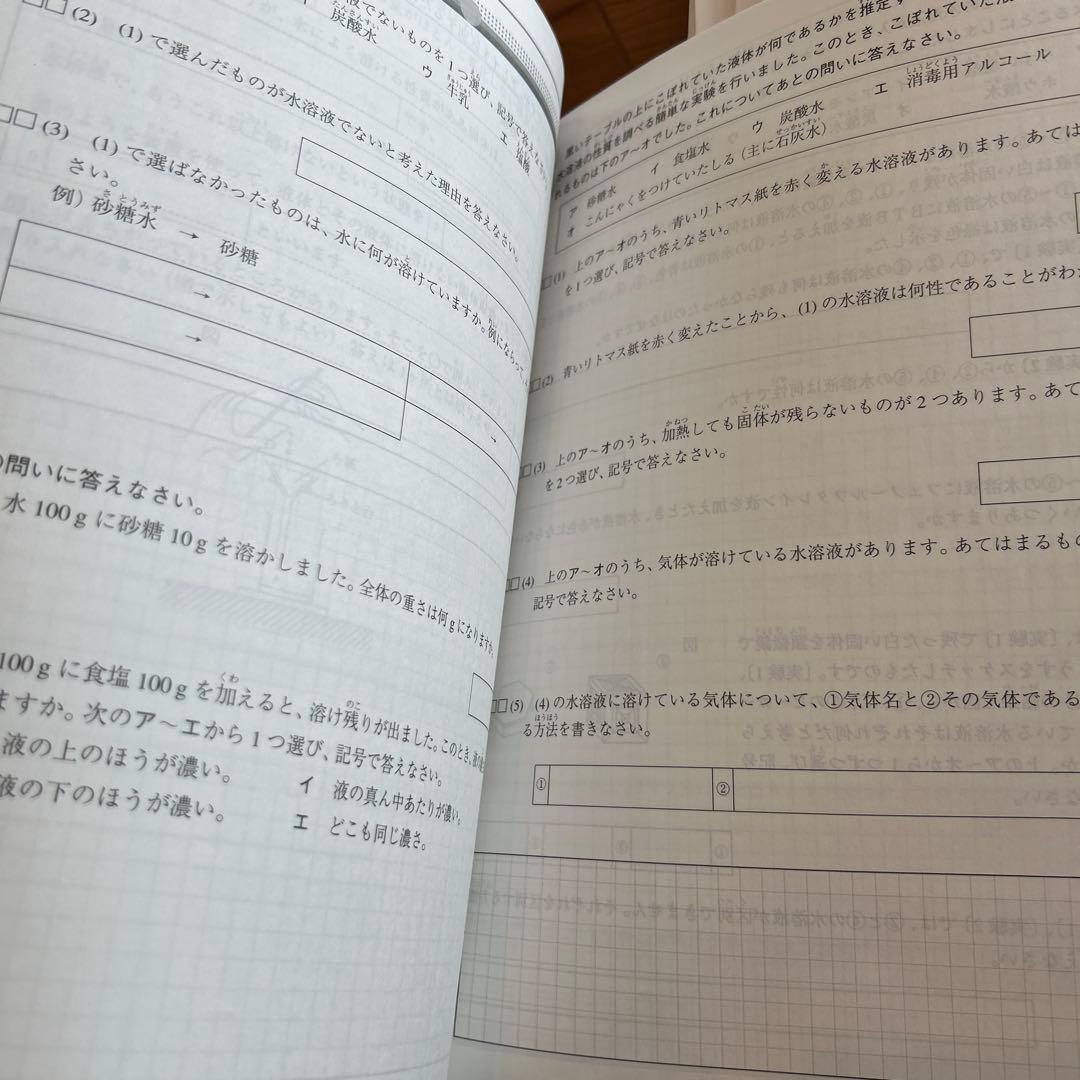 液でないものを1つ選び、記号で答えなさい
炭酸水
ウ 牛乳
エ 塩酸
(2) (1)で選んだものが水溶液でないと考えた理由を答えなさい。
(3) (1)で選ばなかったものは、水に何が溶けていますか。例にならって
さい。
例) 砂糖水 → 砂糖
→
→
→
問いに答えなさい。
水100gに砂糖10gを溶かしました。全体の重さは何gになりますか。
100gに食塩100gを加えると、溶け残りが出ました。このとき、
ますか。次のア~エから1つ選び、記号で答えなさい。
液の上のほうが濃い。
イ 液の真ん中あたりが濃い。
液の下のほうが濃い。
エ どこも同じ濃さ。
テーブルの上にこぼれていた液体が何であるかを推定す
水溶液の性質を調べる簡単な実験を行いました。このとき、こぼれていた液
れるものは下のア~オでした。これについてあとの問いに答えなさい。
ア 砂糖水 イ 食塩水 ウ 炭酸水 エ 消毒用アルコール
オ こんにゃくをつけていたしる(主に石灰水)
(1) 上のア~オのうち、青いリトマス紙を赤く変える水溶液があります。あては
を1つ選び、記号で答えなさい。
(2) 青いリトマス紙を赤く変えたことから、(1)の水溶液は何性であることがわ
(3) 上のア~オのうち、加熱しても固体が残らないものが2つあります。あて
を2つ選び、記号で答えなさい。
(4) 上のア~オのうち、気体が溶けている水溶液があります。あてはまるもの
記号で答えなさい。
(5) (4)の水溶液に溶けている気体について、①気体名と②その気体である
る方法を書きなさい。
① ②